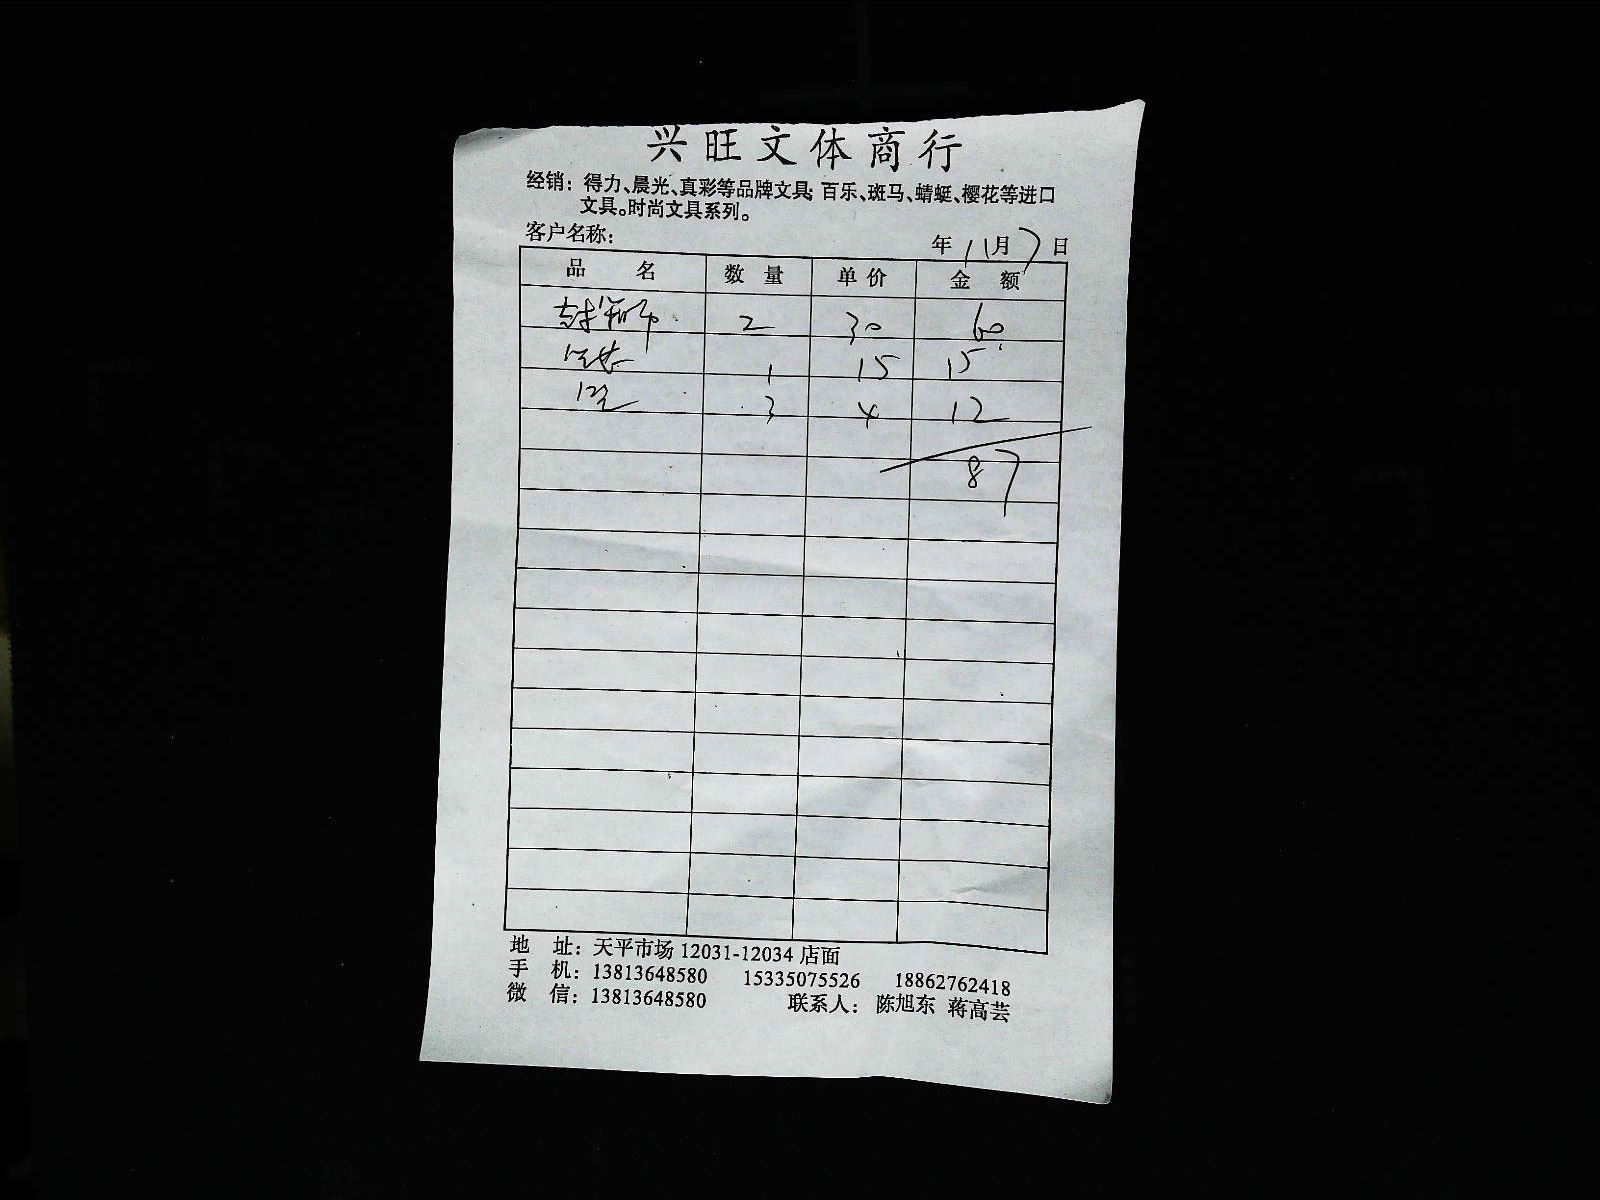 兴旺文体商行
经销：得力、晨光、真彩等品牌文具；百乐、斑马、蜻蜓、樱花等进口
文具。时尚文具系列。
客户名称：
年11月7日
品 名 数 量 单 价 金 额
2 30 60
1 15 15
3 4 12
87
地 址：天平市场 12031-12034 店面
手 机：13813648580 15335075526 18862762418
微 信：13813648580 联系人： 陈旭东 蒋高芸